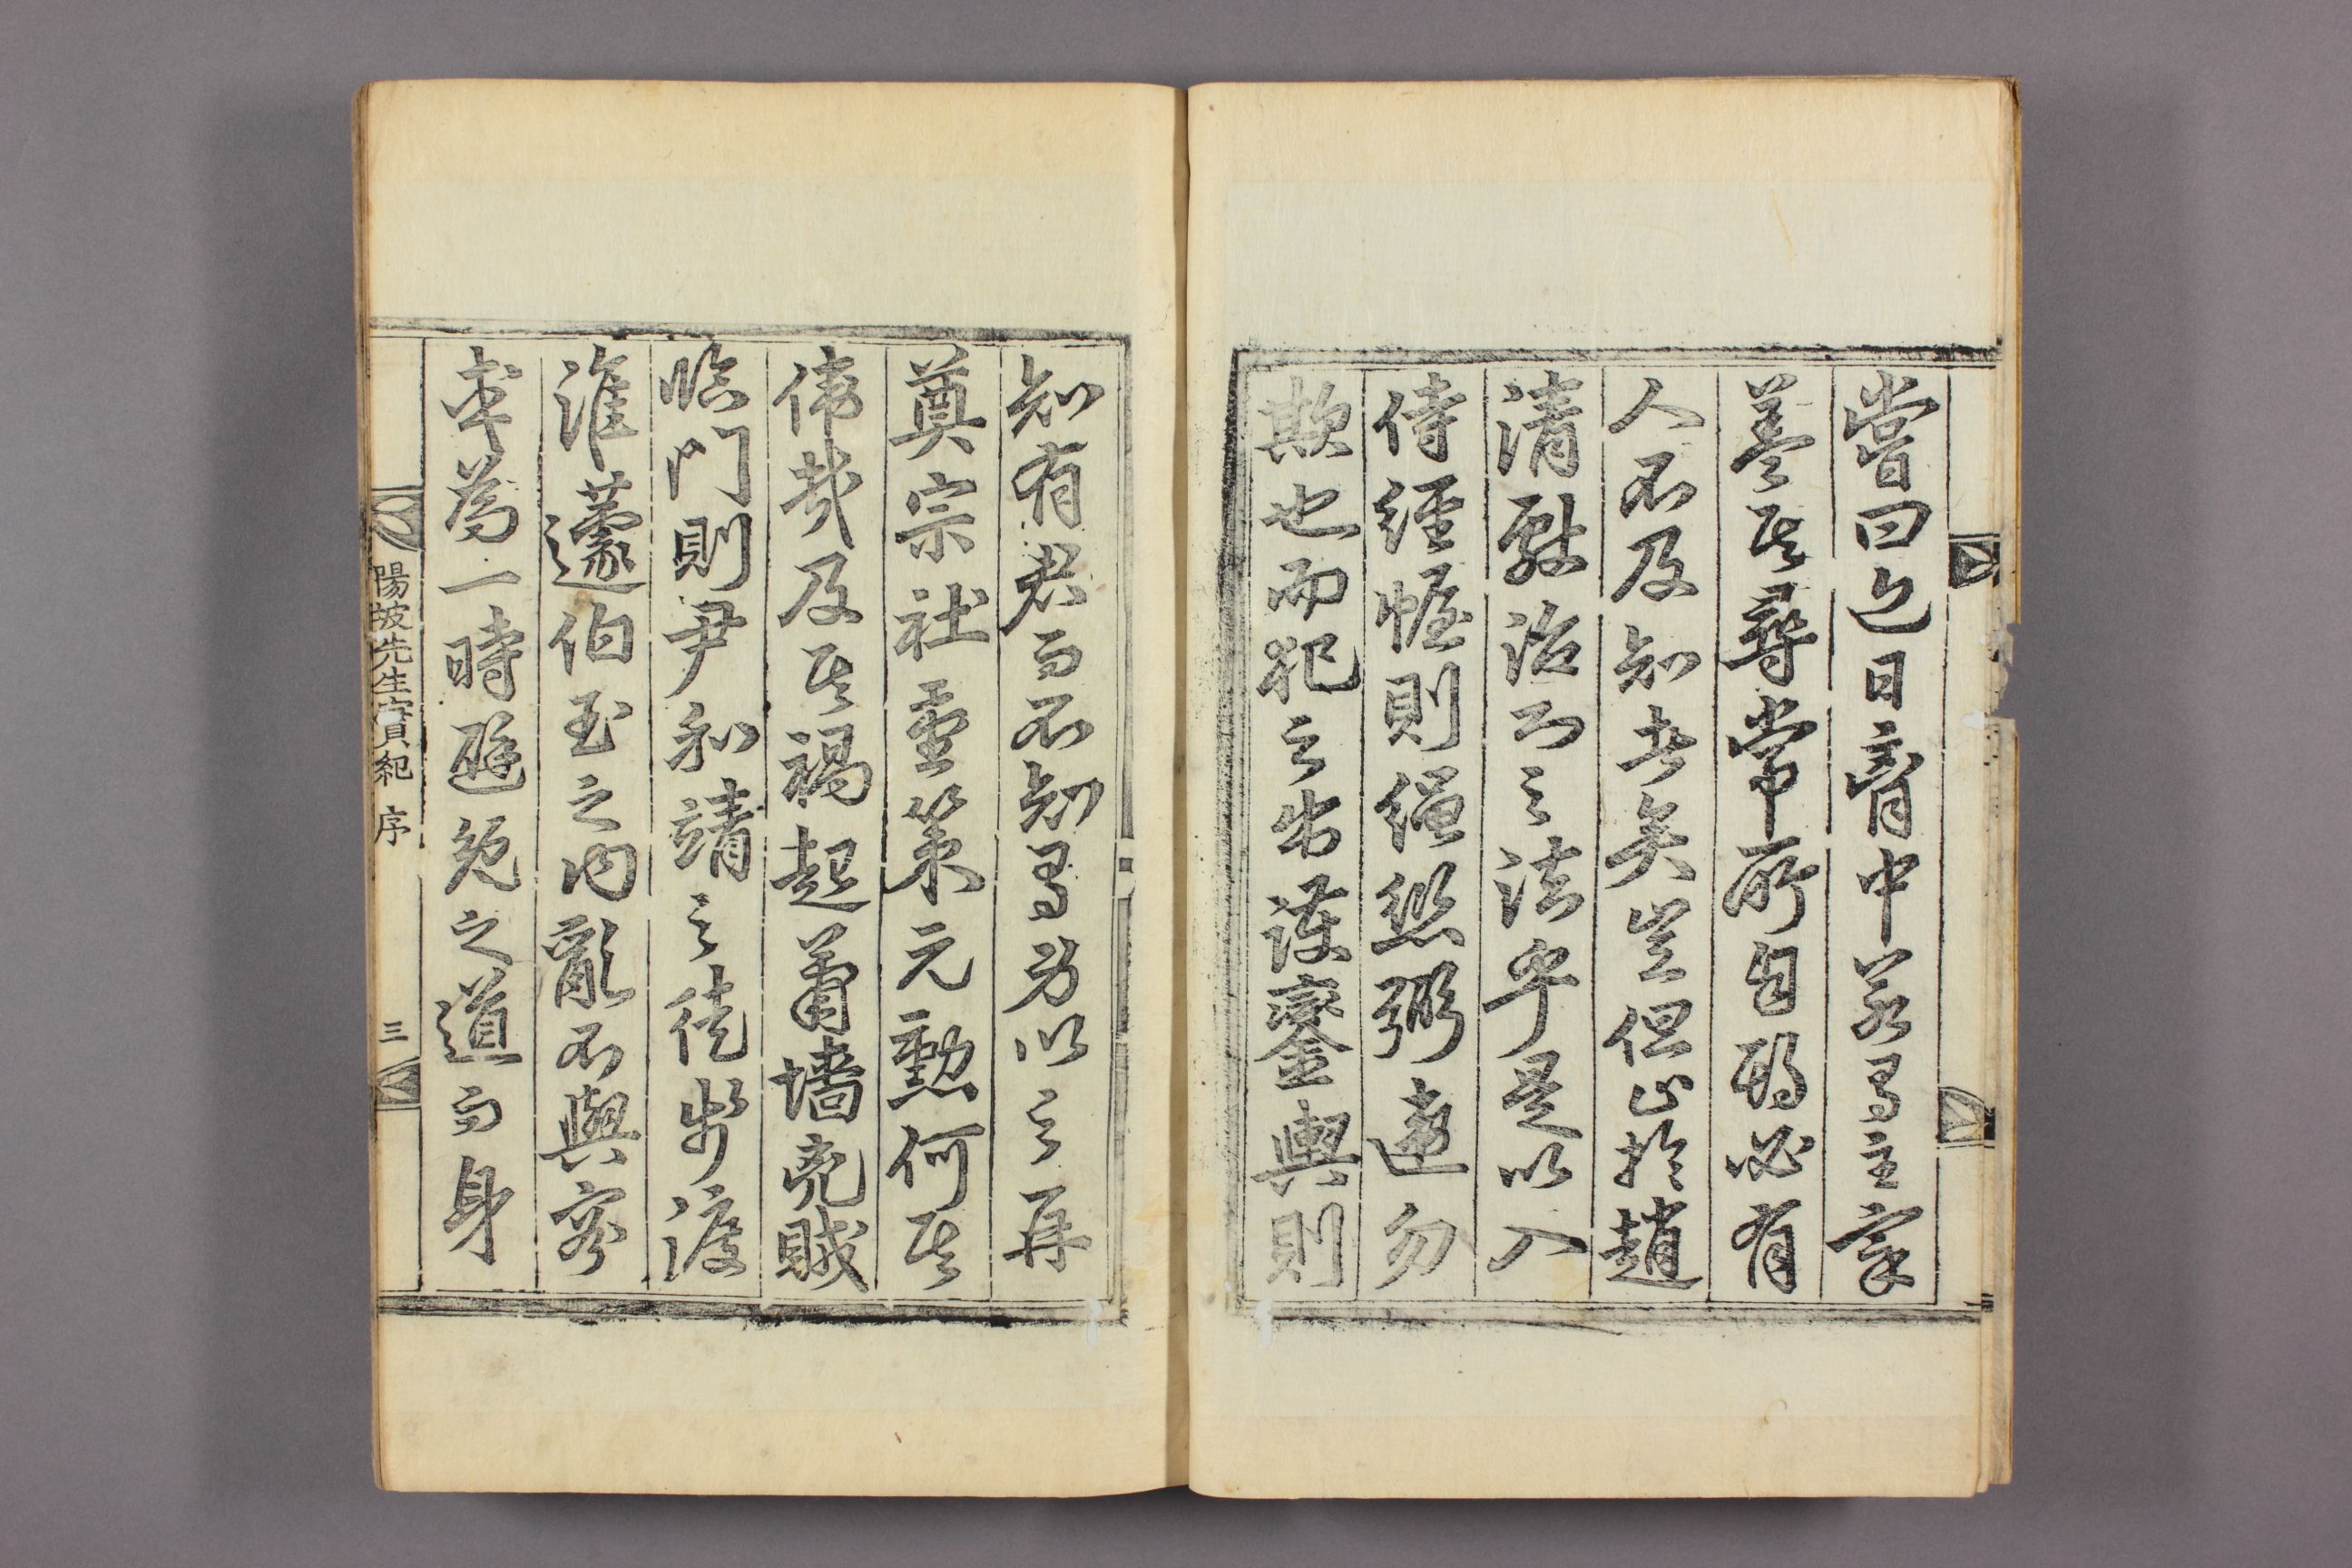 嘗曰近日胷中若有主宰
蓋其尋常所自勵必有
人不及知者矣豈但止於趙
清獻治心之法乎是以入
侍經幄則繩愆弼違勿
欺也而犯之出護鑾輿則
知有君而不知有身以之再
奠宗社靈策元勳何其
偉哉及其禍起蕭墻亮賊
臨門則尹和靖之徒步渡
淮蘧伯玉之內亂不與寀
率為一時避兔之道而身
陽坡先生實紀 序 三